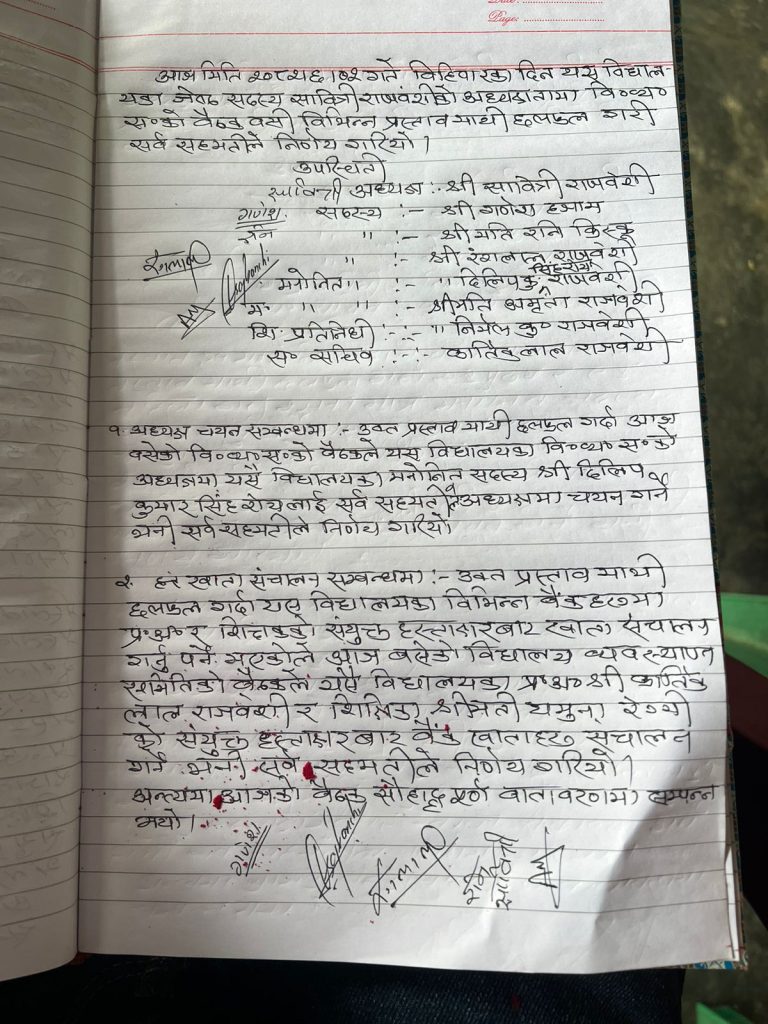 Date:
Page:
आज मिति २०८२।६।०२ गते विहिवारका दिन यस विद्याल-
यका जेष्ठ सदस्य सावित्री राजवंशीको अध्यक्षतामा वि०व्य०
स०को बैठक वसी विभिन्न प्रस्ताव माथी छलफल गरी
सर्व सहमतीले निर्णय गरियो।
उपस्थिती
सावित्री अध्यक्ष :- श्री सावित्री राजवंशी
गणेश सदस्य :- श्री गणेश हजाम
" :- श्री मति रानि किस्कू
रंगलाल " :- श्री रंगलाल राजवंशी
Rajbanshi मनोनित " :- " दिलिपकु सिंह राजवंशी
म० " " :- श्रीमति अमृता राजवंशी
शि. प्रतिनिधी :-:- " निर्मल कु० राजवंशी
स० सचिव :-:- कार्तिकलाल राजवंशी
१. अध्यक्ष चयन सम्बन्धमा :- उक्त प्रस्ताव माथी छलफल गर्दा आज
वसेको वि०व्य०स०को बैठकले यस विद्यालयका वि०व्य०स०को
अध्यक्षमा यसै विद्यालयका मनोनित सदस्य श्री दिलिप
कुमार सिंह लाई सर्व सहमतीले अध्यक्षमा चयन गर्ने
भनी सर्व सहमतीले निर्णय गरियो
२. खाता संचालन सम्बन्धमा :- उक्त प्रस्ताव माथी
छलफल गर्दा यस विद्यालयका विभिन्न बैंकहरुमा
प्र.अ. र शिक्षकको संयुक्त हस्ताक्षरबाट खाता संचालन
गर्नु पर्ने भएकोले आज बसेको विद्यालय व्यवस्थापन
समितिको बैठकले यस विद्यालयका प्र.अ. श्री कार्तिक
लाल राजवंशी र शिक्षिका श्रीमती यमुना रेग्मी
को संयुक्त हस्ताक्षरबाट बैंक खाताहरु संचालन
गर्ने भनी सर्व सहमतीले निर्णय गरियो।
अन्त्यमा आजको बैठक सौहार्द्रपूर्ण वातावरणमा सम्पन्न
भयो।
गणेश Rajbanshi रंगलाल सावित्री